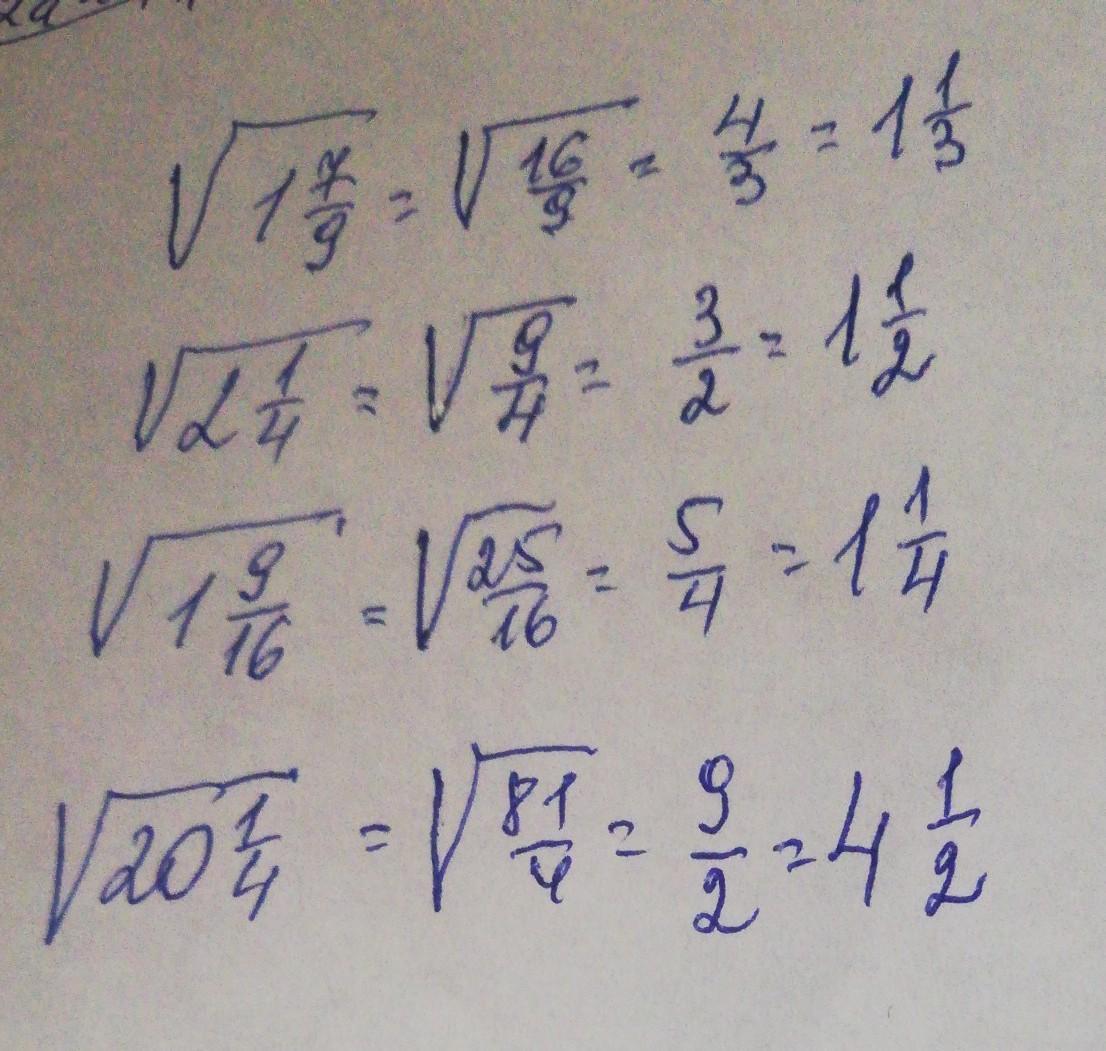 √1 7/9 = √16/9 = 4/3 = 1 1/3
√2 1/4 = √9/4 = 3/2 = 1 1/2
√1 9/16 = √25/16 = 5/4 = 1 1/4
√20 1/4 = √81/4 = 9/2 = 4 1/2